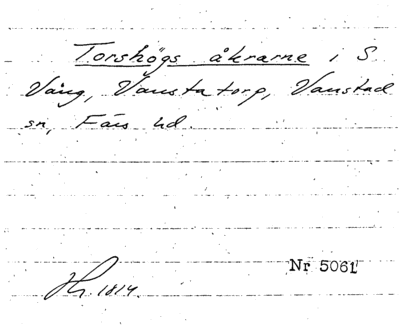 Torshögs åkrarne i S
Vång, Vanstatorp, Vanstad
sn, Färs hd.
Nr 5061
Hr. 1814.